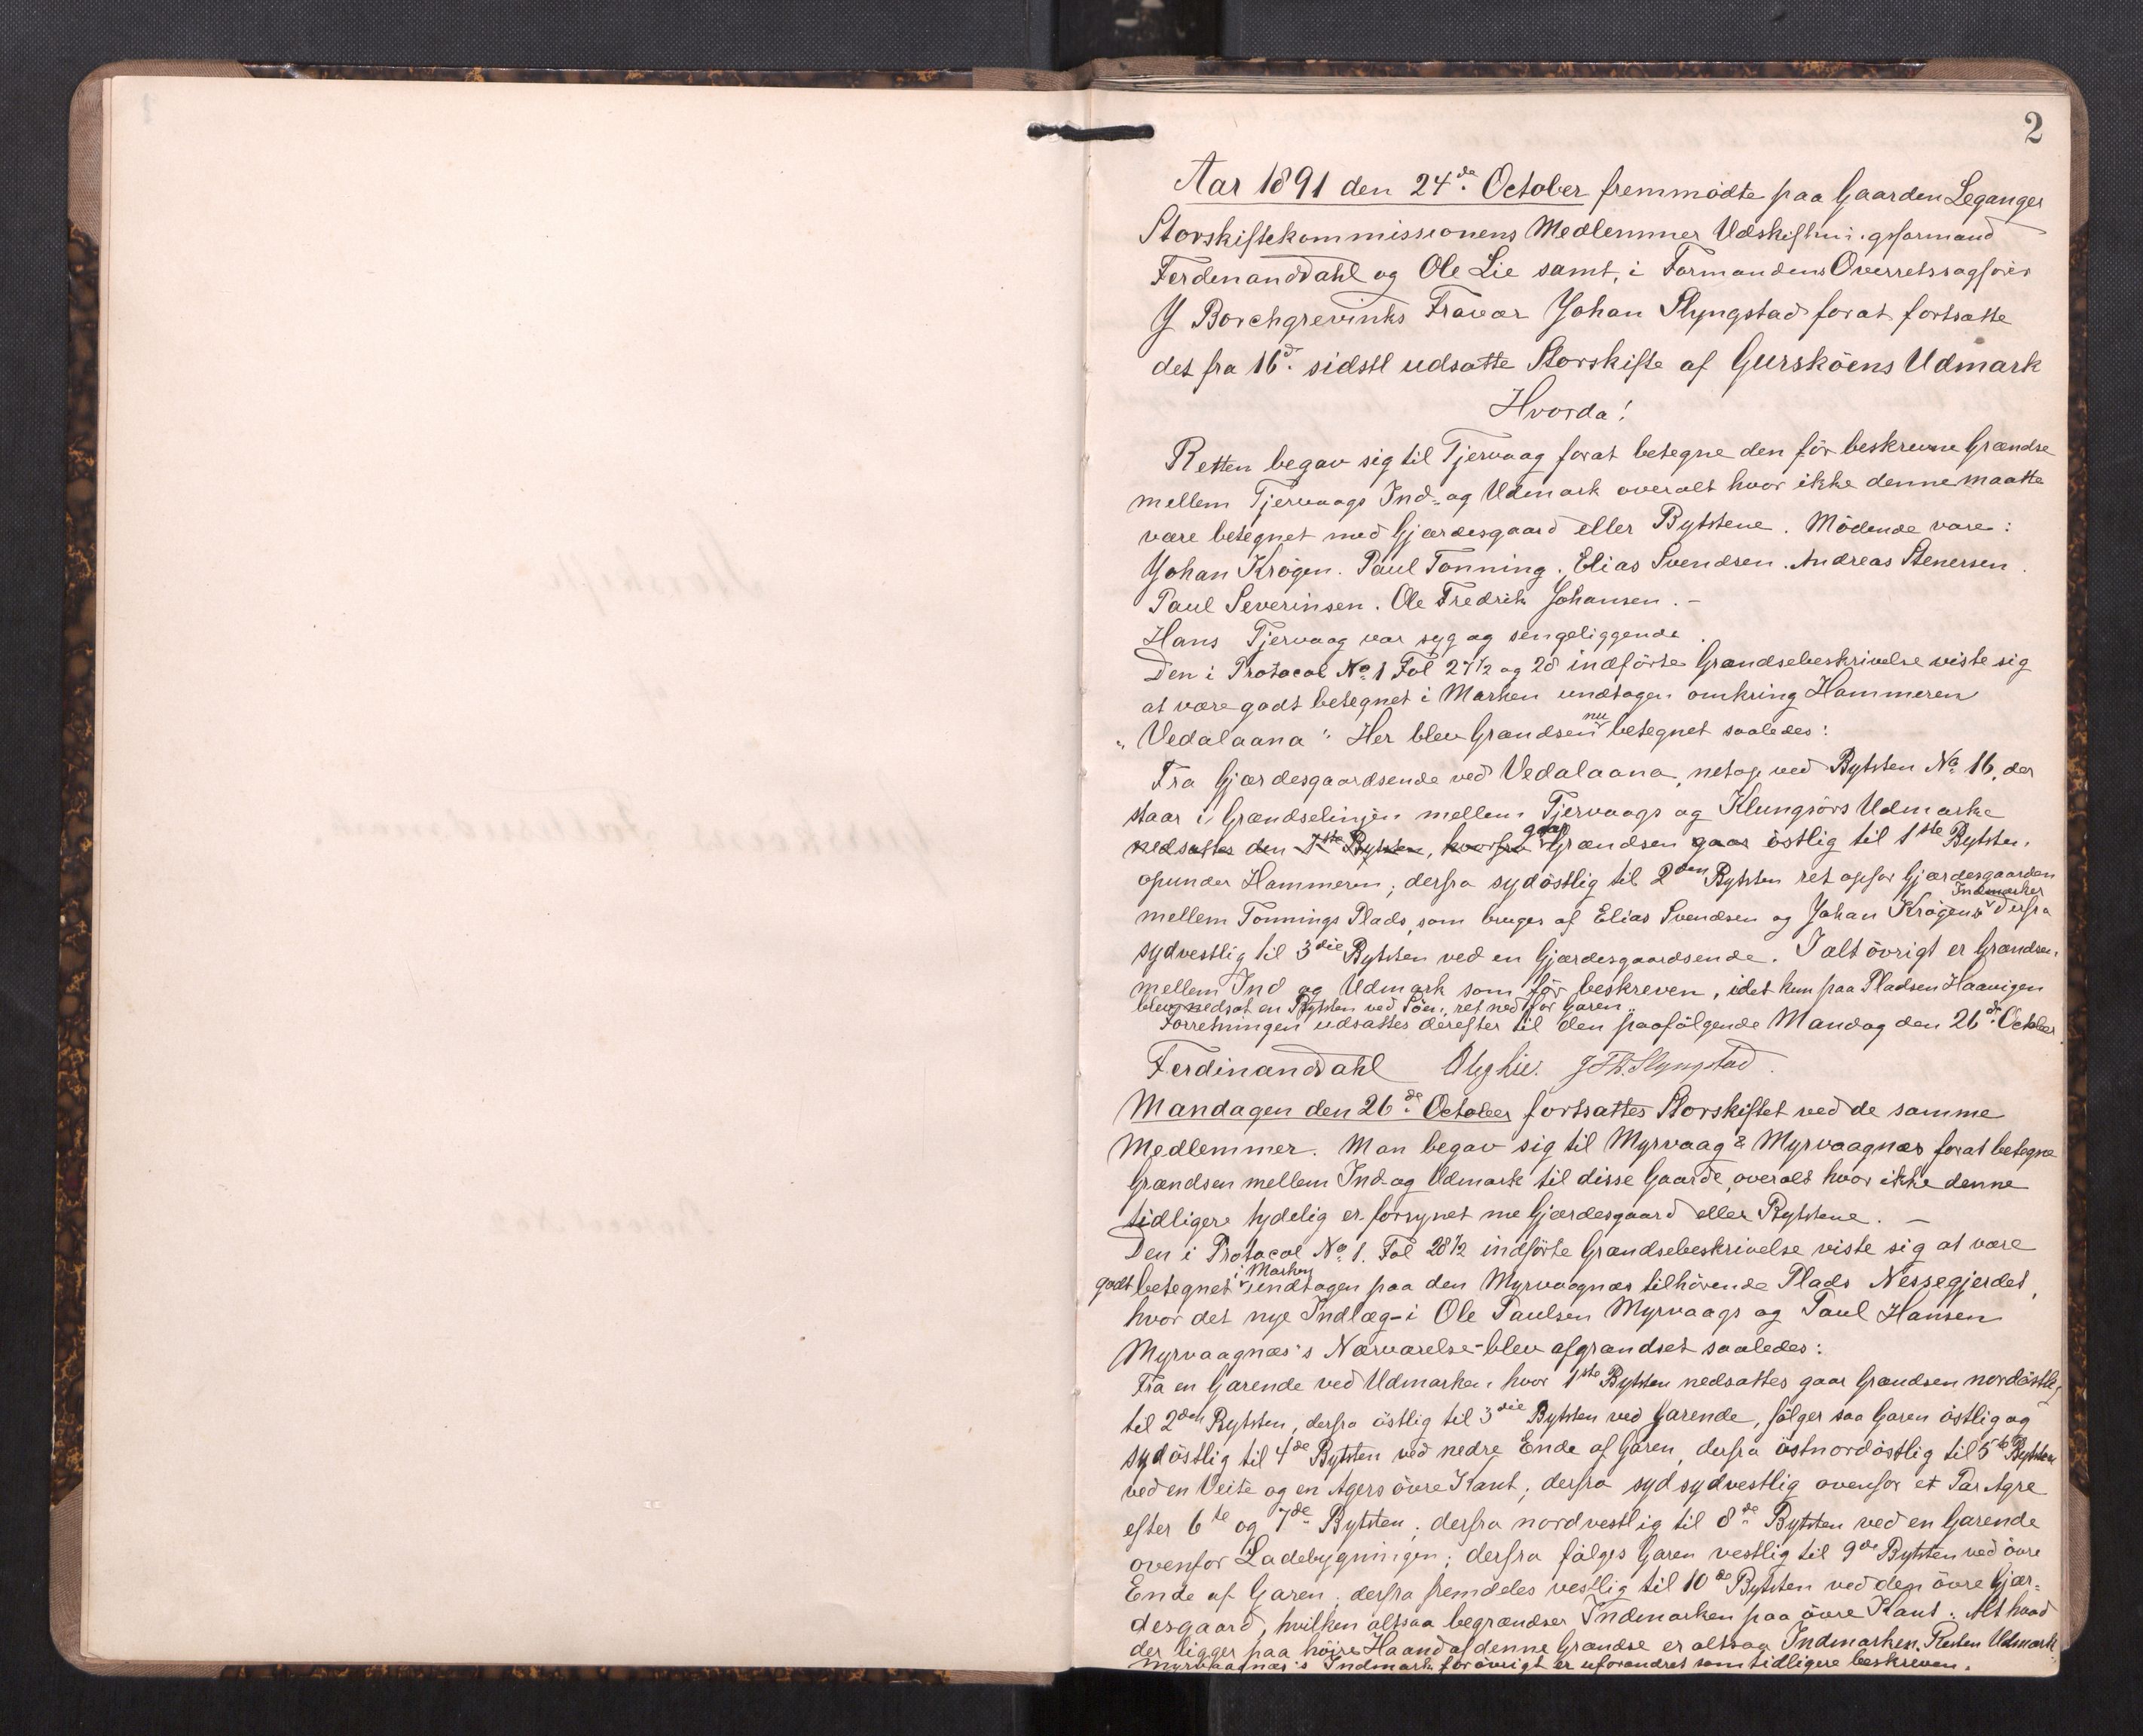 2
Aar 1891 den 24de October fremmödte paa Gaarden Leganger
Storskiftekommissionens Medlemmer Udskiftningsformand
Ferdinand Dahl og Ole Lie samt, i Formandens Overretssagförer
Y Borchgrevinks Fravær Johan Slyngstad forat fortsætte
det fra 16de sidstl udsatte Storskifte af Gursköens Udmark
Hvorda!
Retten begav sig til Tjervaag forat betegne den för beskrevne Grændse
mellem Tjervaags Ind- og Udmark overalt hvor ikke denne maatte
være betegnet med Gjærdesgaard eller Bytstene. Mödende vare:
Johan Krögen. Paul Tonning. Elias Svendsen. Andreas Stenersen.
Paul Severinsen. Ole Fredrik Johansen. -
Hans Tjervaag var syg og sengeliggende.
Den i Protocol No 1 Fol 27½ og 28 indförte Grændsebeskrivelse viste sig
at være godt betegnet i Marken undtagen omkring Hammeren
"Vedalaana". Her blev Grændsen nu betegnet saaledes:
Fra Gjærdesgaardsende ved Vedalaana, netop ved Bytsten No 16, der
staar i Grændselinjen mellem Tjervaags og Klungsörs Udmarke
nedsattes den 1ste Bytsten, hvorfra gaar Grændsen gaar östlig til 1ste Bytsten,
opunder Hammeren; derfra sydöstlig til 2den Bytsten ret opfor Gjærdesgaarden
mellem Tonnings Plads, som bruges af Elias Svendsen og Johan Krögens Indmarker derfra
sydvestlig til 3die Bytsten ved en Gjærdesgaardsende. I alt övrigt er Grændsen
mellem Ind og Udmark som för beskreven, idet kun paa Pladsen Haavigen
blev nedsat en Bytsten ved Söen, ret ned for Garen.
Forretningen udsattes derefter til den paafölgende Mandag den 26de October.
Ferdinand Dahl Ole Lie. J Th. Slyngstad.
Mandagen den 26de October fortsattes Storskiftet ved de samme
Medlemmer. Man begav sig til Myrvaag & Myrvaagnæs forat betegne
Grændsen mellem Ind og Udmark til disse Gaarde, overalt hvor ikke denne
tidligere tydelig er forsynet me Gjærdesgaard eller Bytstene. -
Den i Protocol No 1. Fol 28½ indförte Grændsebeskrivelse viste sig at være
godt betegnet i Marken undtagen paa den Myrvaagnæs tilhörende Plads Nessegjerdet,
hvor det nye Indlæg - i Ole Paulsen Myrvaags og Paul Hansen
Myrvaagnæs's Nærværelse - blev afgrændset saaledes:
Fra en Garende ved Udmarken hvor 1ste Bytsten nedsattes gaar Grændsen nordöstlig
til 2den Bytsten, derfra östlig til 3die Bytsten ved Garende, fölger saa Garen östlig og
sydöstlig til 4de Bytsten ved nedre Ende af Garen, derfra östnordöstlig til 5te Bytsten
ved en Veite og en Agers övre Kant; derfra sydsydvestlig ovenfor et Par Agre
efter 6te og 7de Bytsten; derfra nordvestlig til 8de Bytsten ved en Garende
ovenfor Ladebygningen; derfra fölges Garen vestlig til 9de Bytsten ved övre
Ende af Garen; derfra fremdeles vestlig til 10de Bytsten ved den övre Gjær-
desgaard, hvilken altsaa begrændser Indmarken paa övre Kant. Alt hvad
der ligger paa höire Haand af denne Grændse er altsaa Indmarken, Resten Udmark.
Myrvaagnæs's Indmark forövrigt er uforandret som tidligere beskreven.